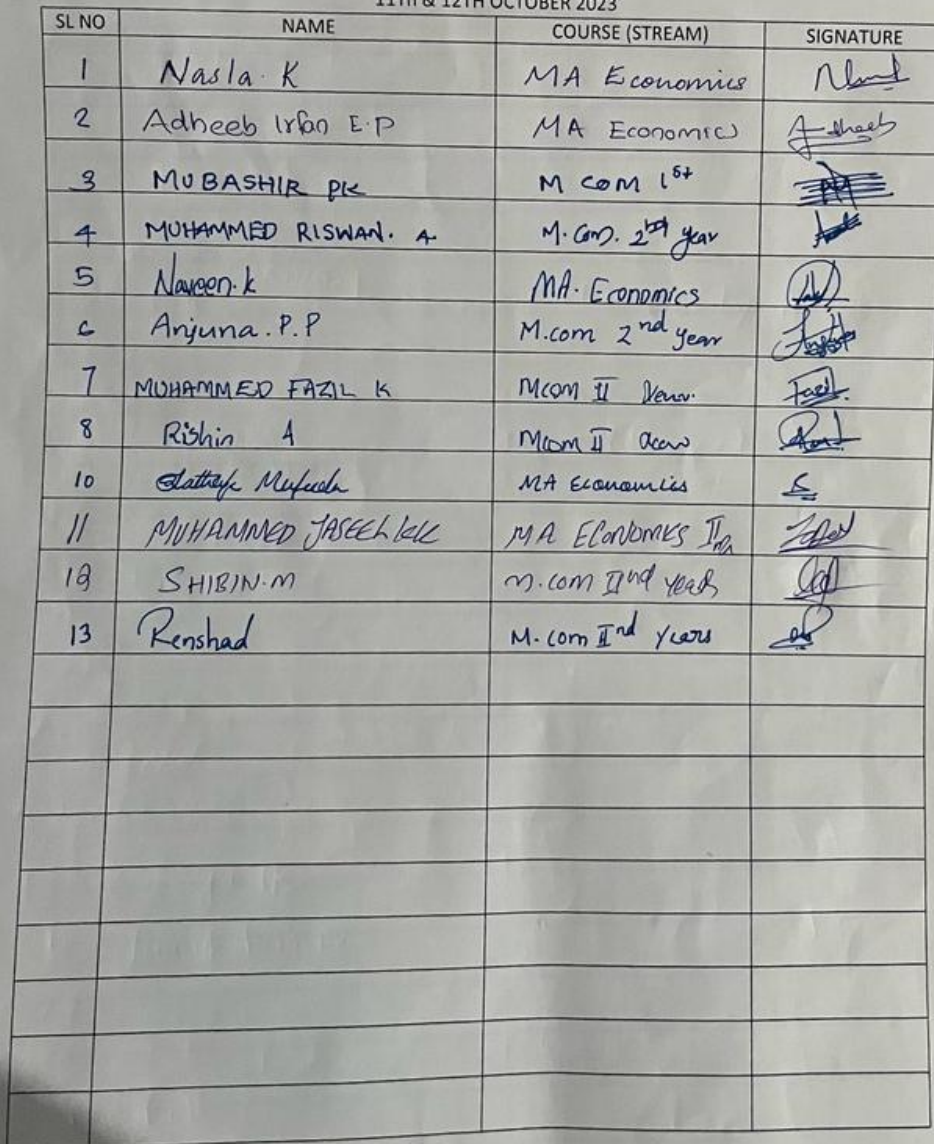 11TH & 12TH OCTOBER 2023
SL NO NAME COURSE (STREAM) SIGNATURE
1 Nasla. K MA Economics
2 Adheeb Irfan E.P MA Economics Adheeb
3 MUBASHIR PK M COM 1st
4 MUHAMMED RISWAN. A M.Com. 2nd year
5 Naveen.k MA. Economics
6 Anjuna.P.P M.com 2nd year
7 MUHAMMED FAZIL K Mcom II Fazil
8 Rishin A Mcom II
10 MA Economics
11 MUHAMMED JASEEL MA ECONOMICS II
12 SHIBIN.M M.com IInd year
13 Renshad M.com IInd years